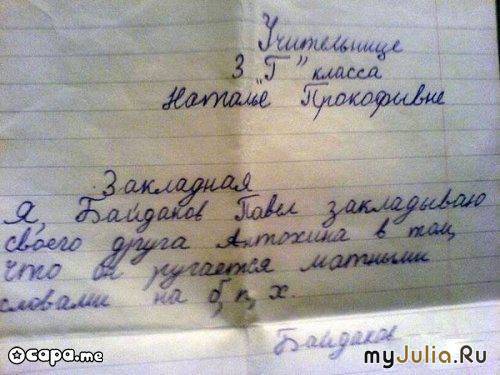 Учительнице
3 "Г" класса
Наталье Прокофивне
Закладная
Я, Байдаков Павел закладываю
своего друга Антохина в том,
что он ругается матными
словами на б, п, х.
Байдаков
capa.me
myJulia.Ru